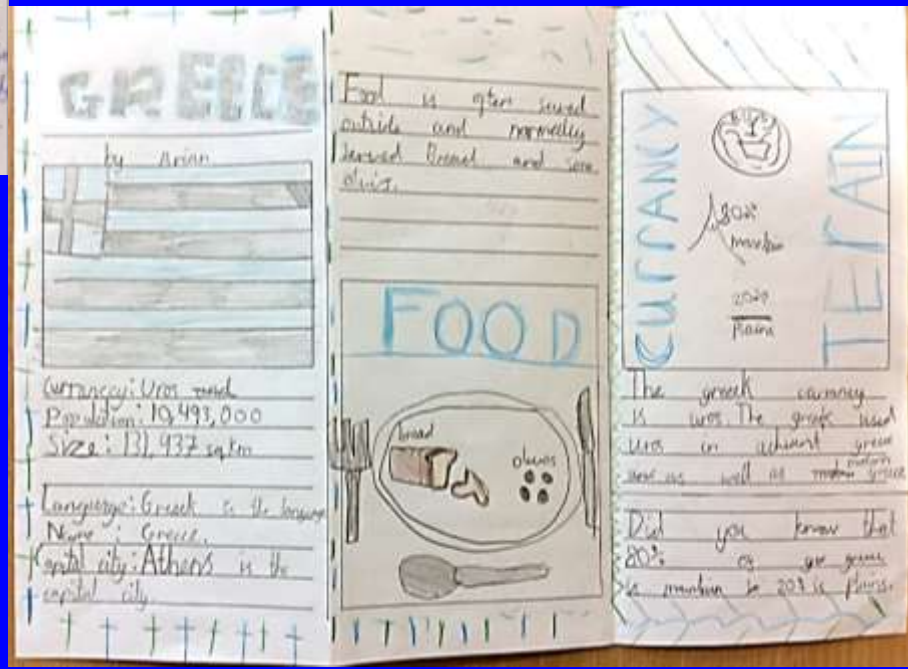 GREECE
by Arian
Currancey: Uros
Population: 10,493,000
Size: 131,937 sq km
Language: Greek is the language
Name: Greece.
Capital city: Athens is the
capital city.
Food is often served
outside and normally
served Bread and some
FOOD
bread
CURRANCY
80%
20%
TERAIN
The greek
is uros. The greeks used
uros in greece
and as well as greece
Did you know that
80% of greece
is 20% is plains.